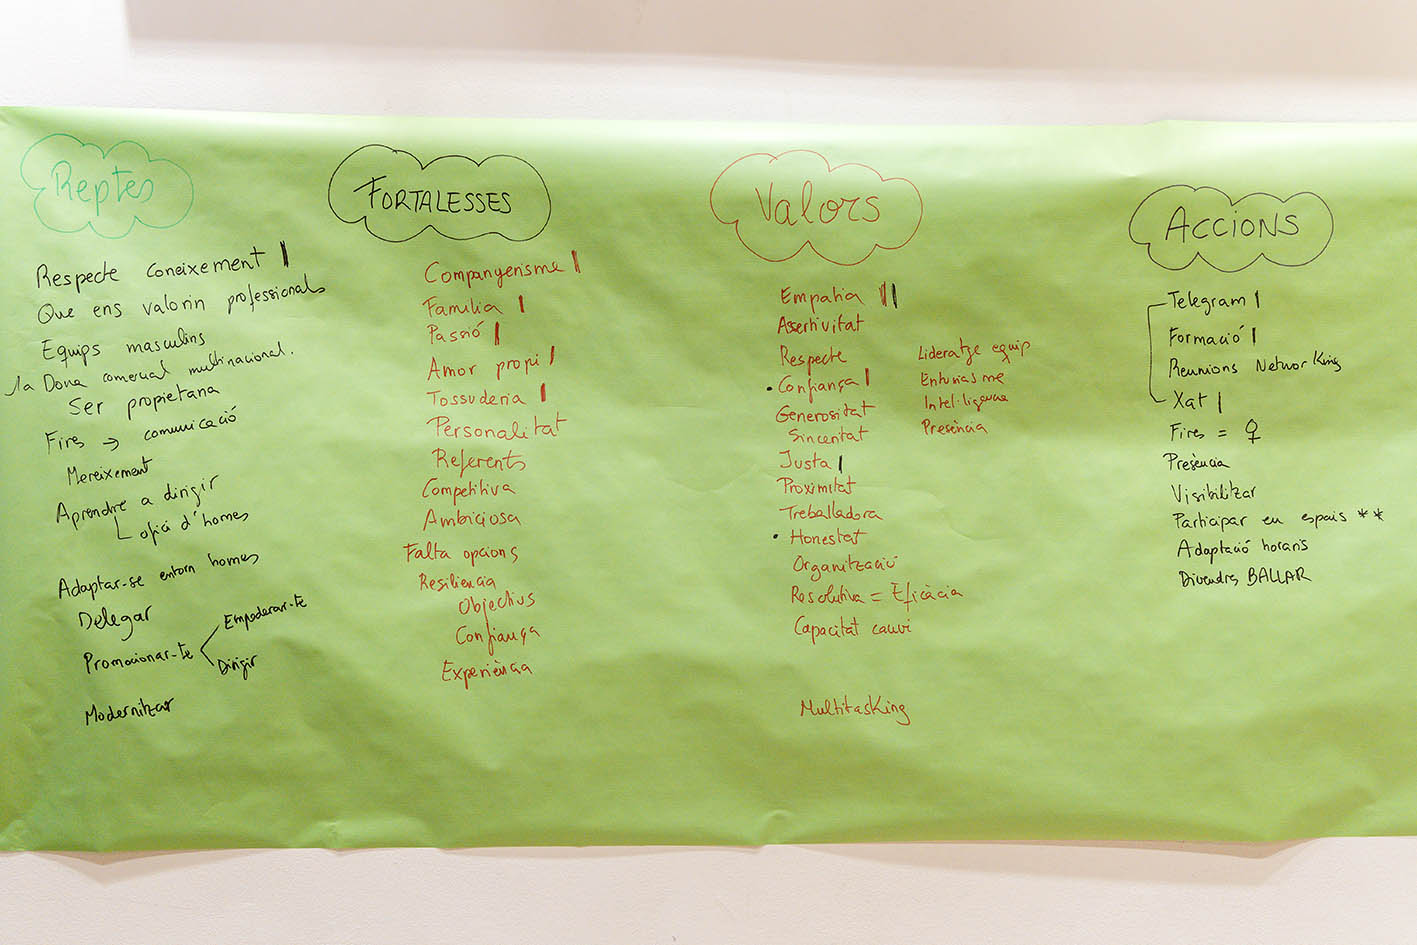 Reptes
Respecte coneixement |
Que ens valorin professionals
Equips masculins
1a Dona comercial multinacional.
Ser propietaria
Fires → comunicació
Mereixement
Aprendre a dirigir
ofici d'homes
Adaptar-se entorn homes
Delegar
Promocionar-te
Empoderar-te
Dirigir
Modernitzar
FORTALESSES
Companyerisme |
Familia |
Passió |
Amor propi |
Tossuderia |
Personalitat
Referents
Competitiva
Ambiciosa
Falta opcions
Resiliencia
Objectius
Confiança
Experiència
Valors
Empatia |||
Assertivitat
Respecte
• Confiança |
Generositat
Sinceritat
Justa |
Proximitat
Treballadora
• Honestat
Organització
Resolutiva = Eficàcia
Capacitat canvi
Multitasking
Lideratge equip
Entusiasme
Intel·ligencia
Presència
ACCIONS
Telegram |
Formació |
Reunions Networking
Xat |
Fires = ♀
Presència
Visibilitzar
Participar en espais **
Adaptació horaris
Divendres BALLAR